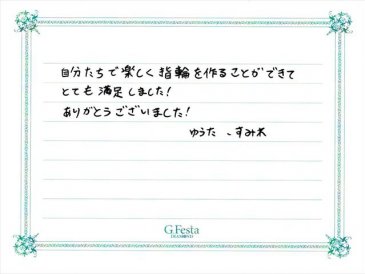 自分たちで楽しく指輪を作ることができて
とても満足しました！
ありがとうございました！
ゆうた 、すみれ
G.Festa